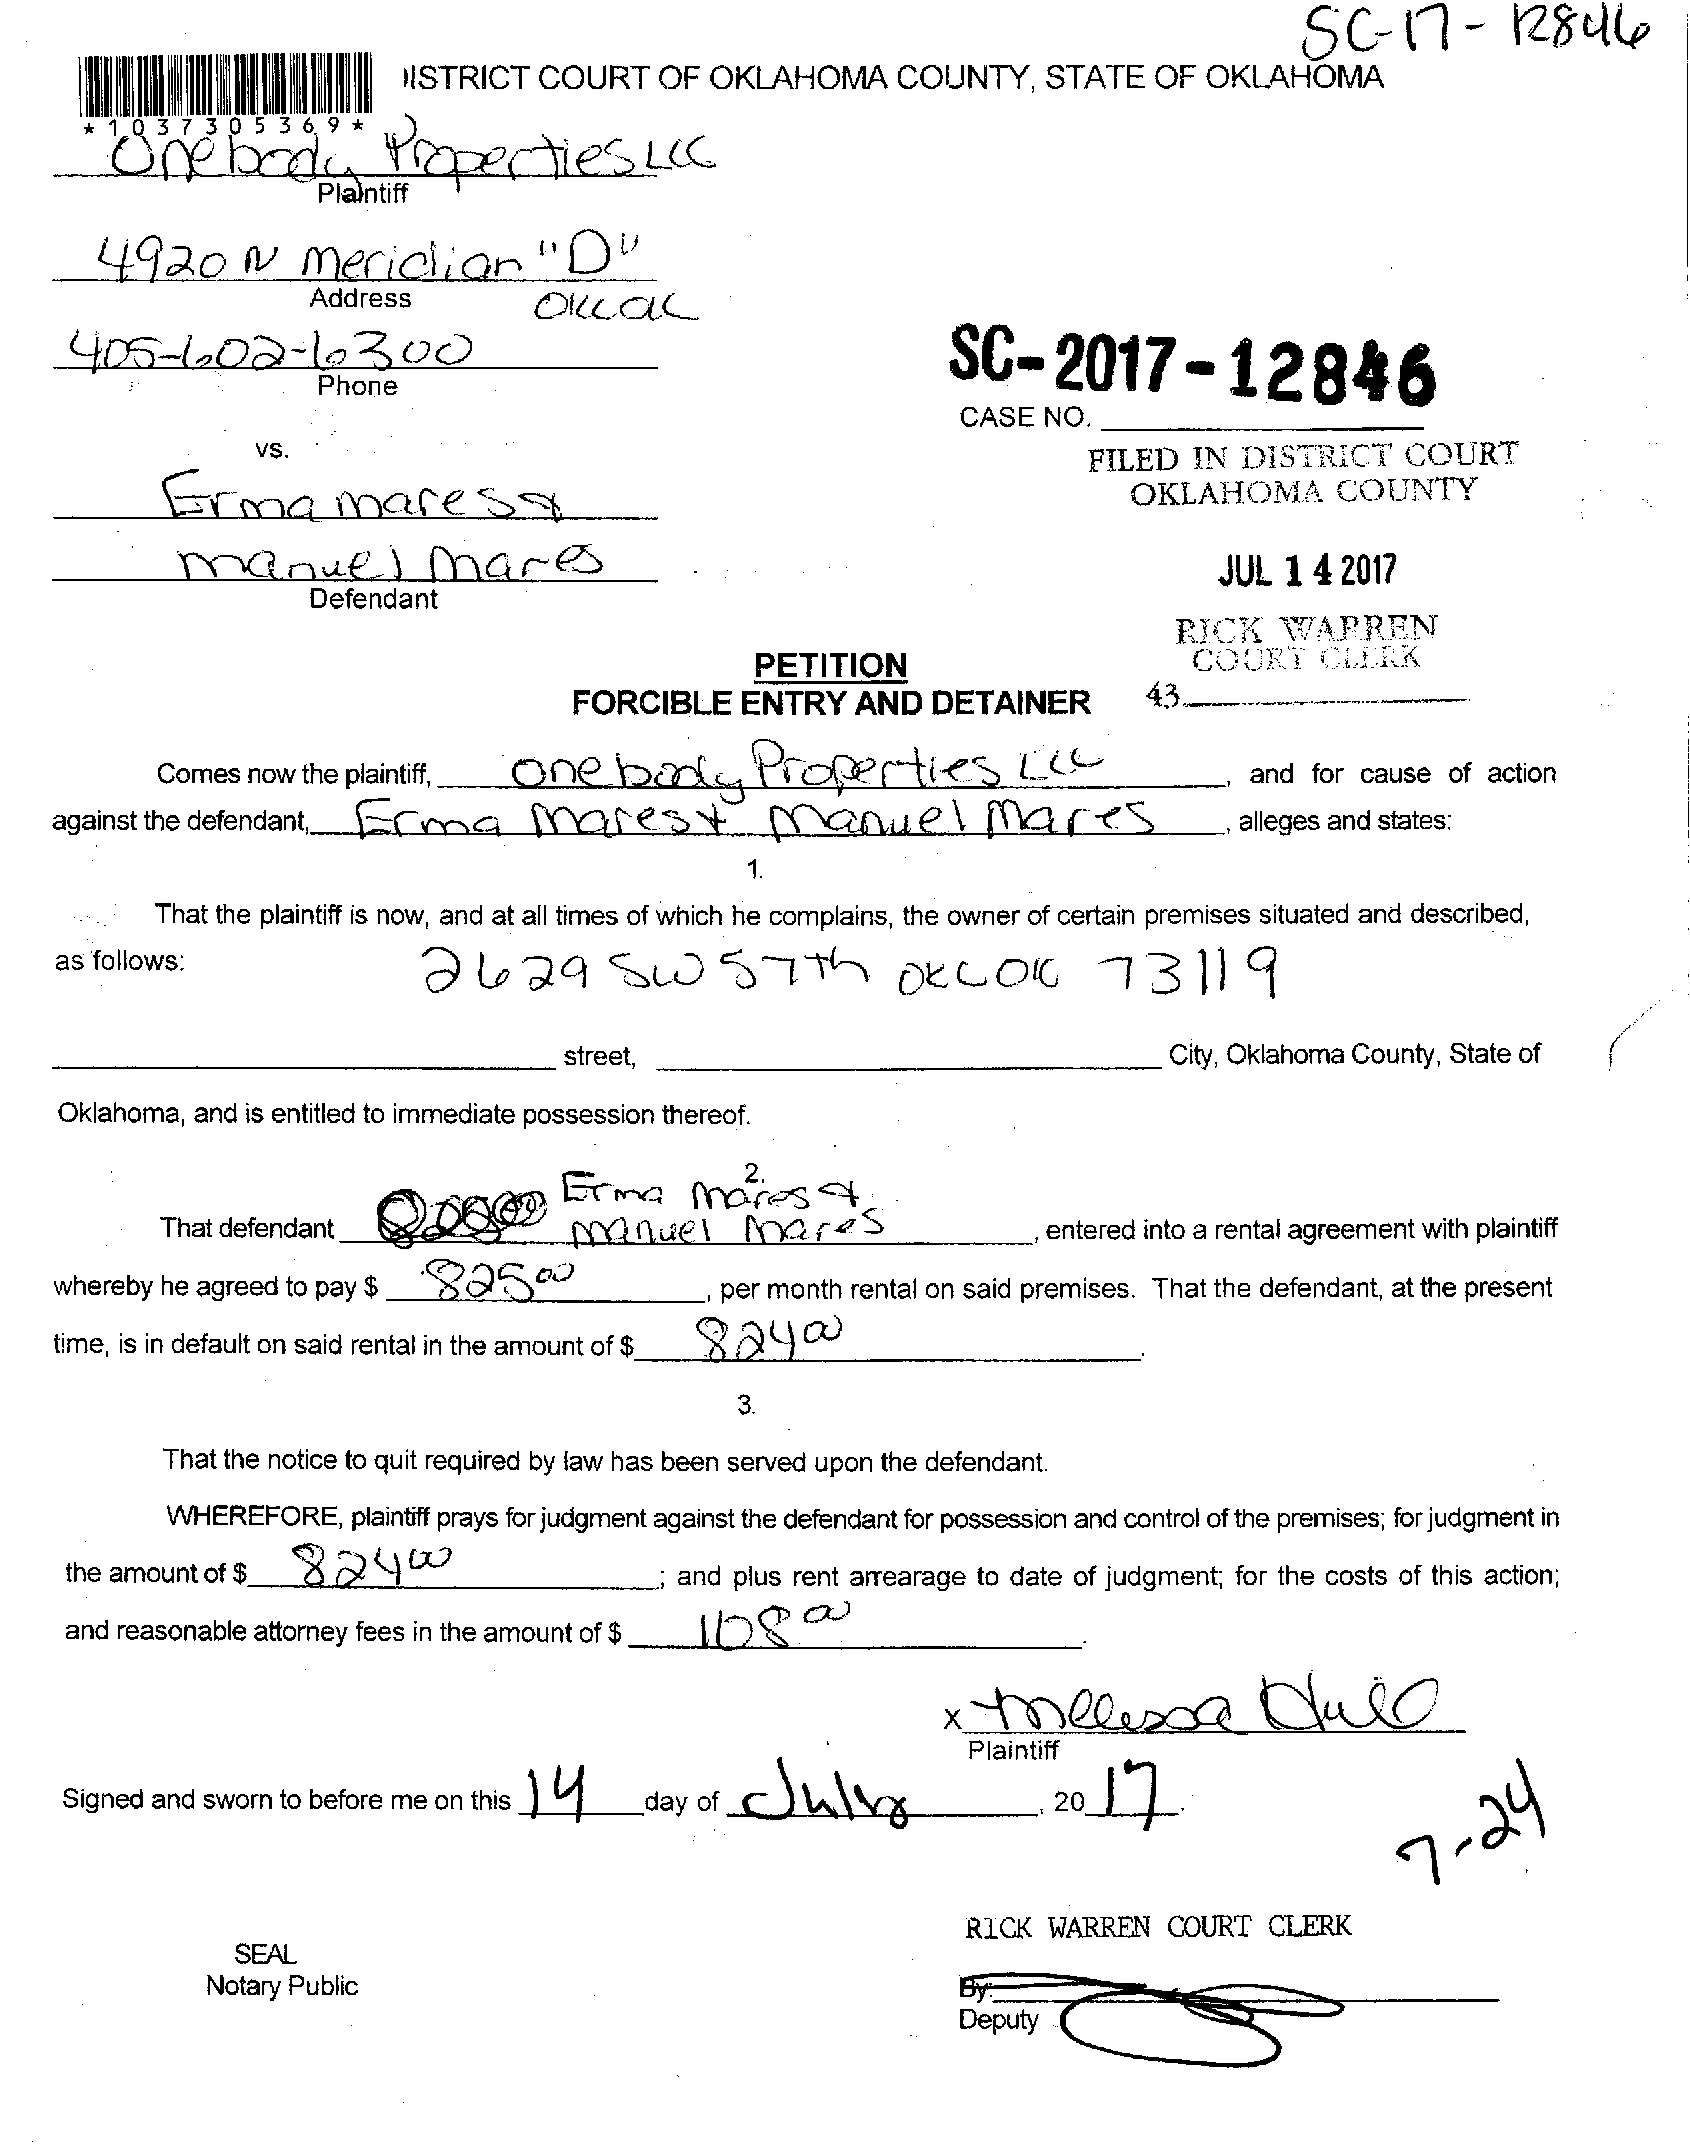 SC-17-12846
ISTRICT COURT OF OKLAHOMA COUNTY, STATE OF OKLAHOMA
*1037305369*
Onebody Properties LLC
Plaintiff
4920 N Meridian "D"
Address OKC OK
405-602-6300
Phone
SC-2017-12846
CASE NO.
vs.
FILED IN DISTRICT COURT
OKLAHOMA COUNTY
Erma mares &
manuel mares
Defendant
JUL 14 2017
RICK WARREN
COURT CLERK
43
PETITION
FORCIBLE ENTRY AND DETAINER
Comes now the plaintiff, Onebody Properties LLC, and for cause of action
against the defendant, Erma Mares & Manuel Mares, alleges and states:
1.
That the plaintiff is now, and at all times of which he complains, the owner of certain premises situated and described,
as follows: 2629 SW 57th OKC OK 73119
street, City, Oklahoma County, State of
Oklahoma, and is entitled to immediate possession thereof.
2.
Erma Mares &
That defendant manuel mares, entered into a rental agreement with plaintiff
whereby he agreed to pay $ 825 00, per month rental on said premises. That the defendant, at the present
time, is in default on said rental in the amount of $ 824 00.
3.
That the notice to quit required by law has been served upon the defendant.
WHEREFORE, plaintiff prays for judgment against the defendant for possession and control of the premises; for judgment in
the amount of $ 824 00; and plus rent arrearage to date of judgment; for the costs of this action;
and reasonable attorney fees in the amount of $ 108 00.
x Melissa Hull
Plaintiff
Signed and sworn to before me on this 14 day of July, 20 17.
7-24
RICK WARREN COURT CLERK
SEAL
Notary Public
By:
Deputy